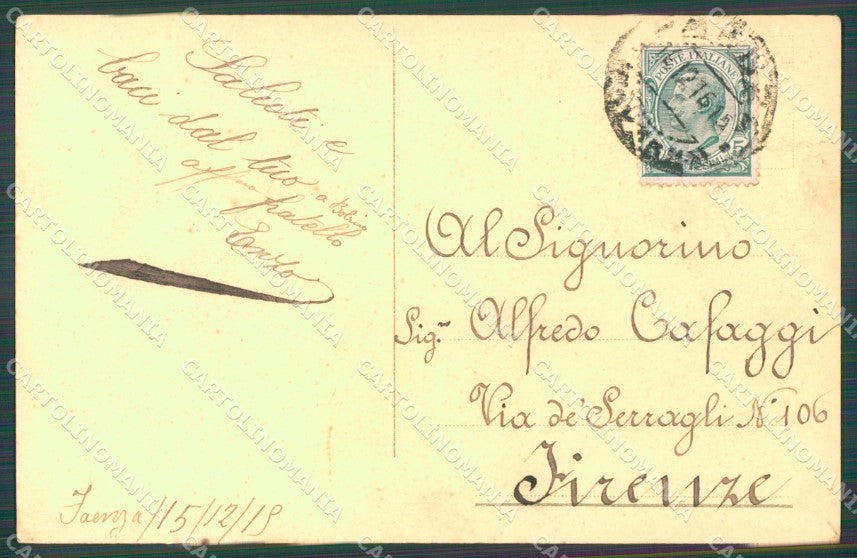 Saluti e
baci dal tuo
aff.mo fratello
Enzo
Faenza/15/12/15
POSTE ITALIANE
Al Signorino
Sig.r Alfredo Cafaggi
Via de' Serragli N. 106
Firenze
CARTOLINOMANIA